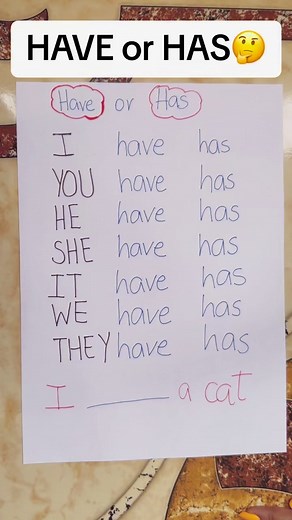 HAVE or HAS🤔
Have or Has
I have has
YOU have has
HE have has
SHE have has
IT have has
WE have has
THEY have has
I ______ a cat